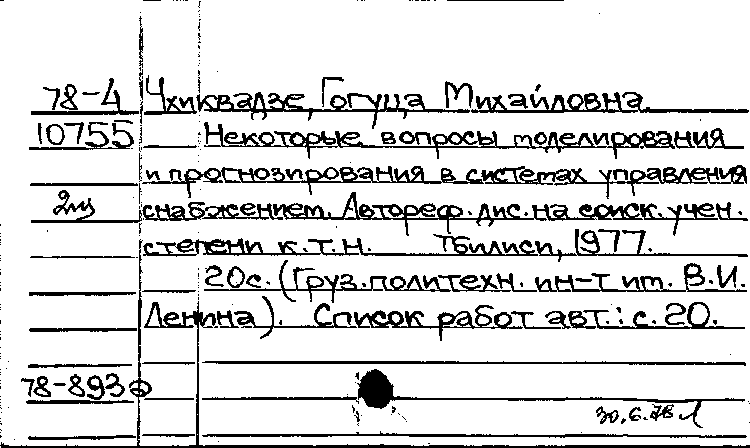 78-4 Чхиквадзе, Гогуца Михайловна.
10755 Некоторые вопросы моделирования
и прогнозирования в системах управления
снабжением. Автореф. дис. на соиск. учен.
степени к.т.н. Тбилиси, 1977.
20с. (Груз. политехн. ин-т им. В.И.
Ленина). Список работ авт.: с. 20.
78-893
30.6.78